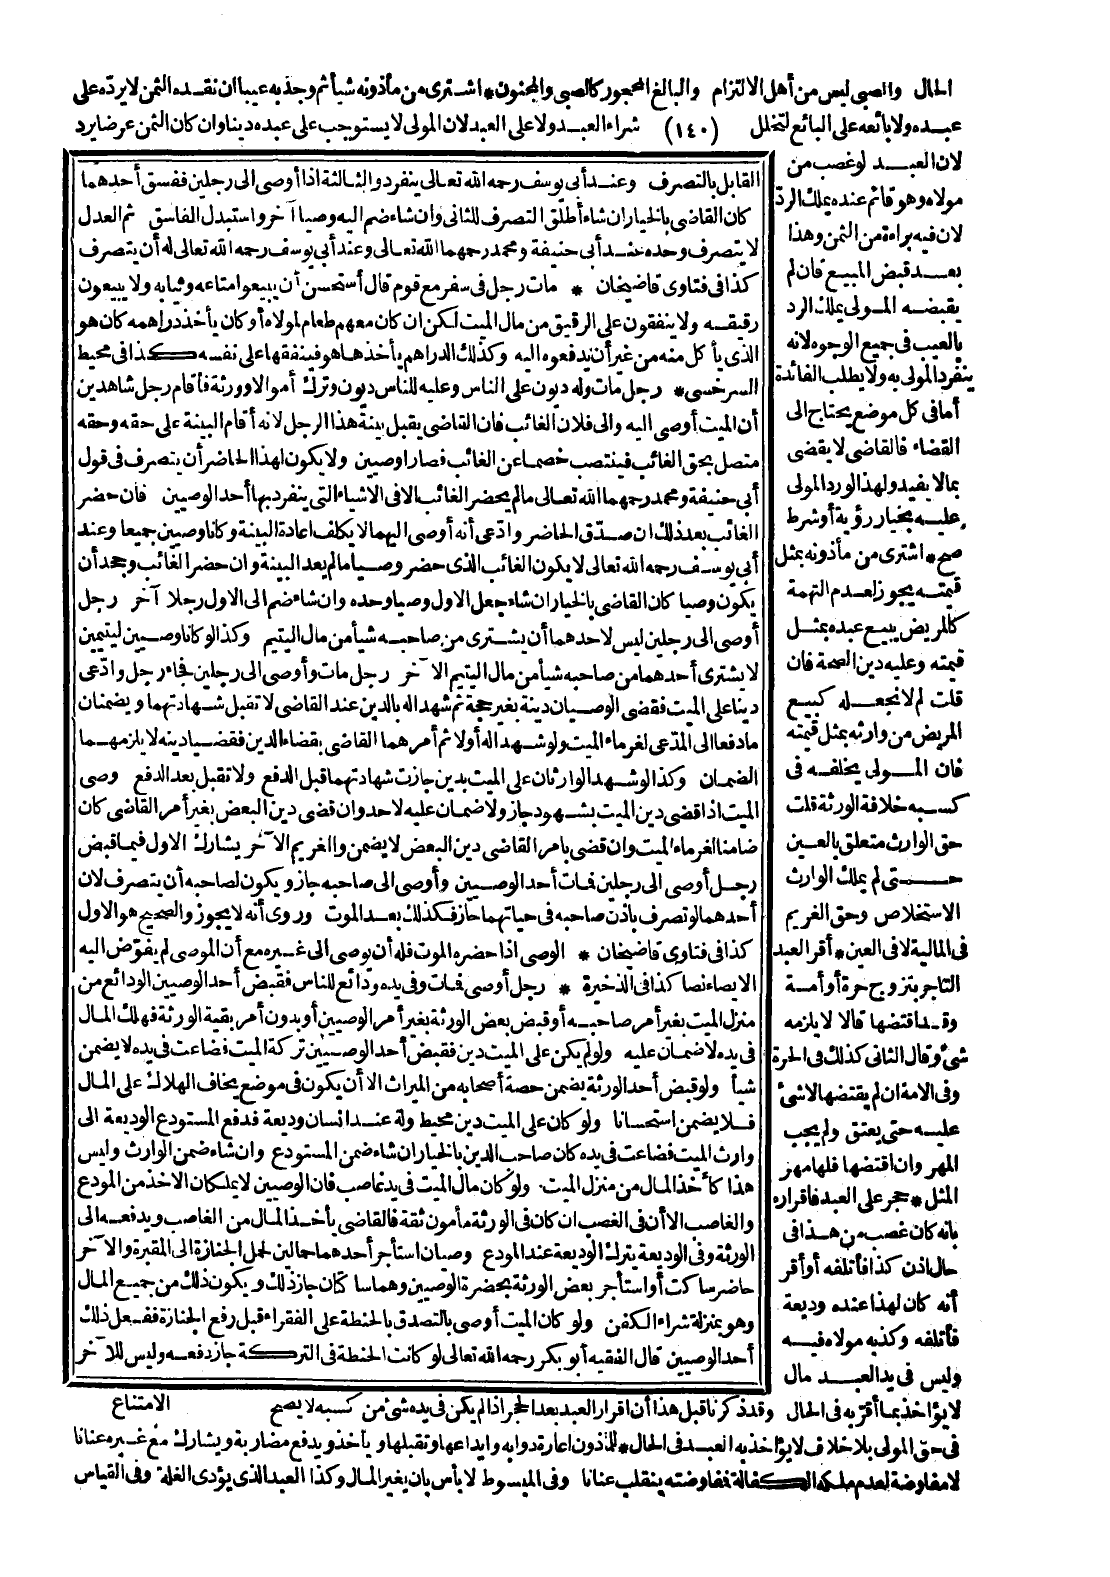 الحال والصبى ليس من أهل الالتزام والبالغ المحجور كالصبى والمجنون * اشترى من مأذونه شيأ ثم وجد به عيبا ان نقده الثمن لا يردّه على
عبده ولا بائعه على البائع لتخلل (١٤٠) شراء العبد ولا على العبد لان المولى لا يستوجب على عبده دينا وان كان الثمن عرضا يرد
لان العبد لو غصب من
مولاه وهو قائم عنده يملك الردّ
لان فيه براءة من الثمن وهذا
بعد قبض المبيع فان لم
يقبضه المولى يملك الرد
بالعيب فى جميع الوجوه لانه
ينفرد المولى به ولا يطلب الفائدة
أما فى كل موضع يحتاج الى
القضاء فالقاضى لا يقضى
بما لا يفيد ولهذا لو رد المولى
عليه بخيار رؤية أو شرط
صح * اشترى من مأذونه بمثل
قيمته يجوز لعدم التهمة
كالمريض يبيع عبده بمثل
قيمته وعليه دين الصحة فان
قلت لم لا نجعله كبيع
المريض من وارثه بمثل قيمته
فان المولى يخلفه فى
كسبه خلافة الورثة قلت
حق الوارث متعلق بالعين
حتى لم يملك الوارث
الاستخلاص وحق الغريم
فى المالية لا فى العين * أقر العبد
التاجر بتزوج حرة أو أمة
وقد اقتضها قالا لا يلزمه
شئ وقال الثانى كذلك فى الحرة
وفى الامة ان لم يقتضها لا شئ
عليه حتى يعتق ولم يجب
المهر وان اقتضها فلها مهر
المثل * حجر على العبد فاقراره
بانه كان غصب من هذا فى
حال اذن كذا فأتلفه أو أقر
أنه كان لهذا عنده وديعة
فأتلفه وكذبه مولاه فيه
وليس فى يد العبد مال
القابل بالتصرف وعند أبى يوسف رحمه الله تعالى ينفرد والثالثة اذا أوصى الى رجلين ففسق أحدهما
كان القاضى بالخيار ان شاء أطلق التصرف للثانى وان شاء ضم اليه وصيا آخر واستبدل الفاسق ثم العدل
لا يتصرف وحده عند أبى حنيفة ومحمد رحمهما الله تعالى وعند أبى يوسف رحمه الله تعالى له أن يتصرف
كذا فى فتاوى قاضيخان * مات رجل فى سفر مع قوم قال أستحسن أن يبيعوا متاعه وثيابه ولا يبيعون
رقيقه ولا ينفقون على الرقيق من مال الميت لكن ان كان معهم طعام لمولاه أو كان يأخذ دراهمه كان هو
الذى يأكل منه من غير أن يدفعوه اليه وكذلك الدراهم يأخذها هو فينفقها على نفسه كذا فى محيط
السرخسى * رجل مات وله ديون على الناس وعليه للناس ديون وترك أموالا وورثة فأقام رجل شاهدين
أن الميت أوصى اليه والى فلان الغائب فان القاضى يقبل بينة هذا الرجل لانه أقام البينة على حقه وحقه
متصل بحق الغائب فينتصب خصما عن الغائب فصارا وصيين ولا يكون لهذا الحاضر أن يتصرف فى قول
أبى حنيفة ومحمد رحمهما الله تعالى ما لم يحضر الغائب الا فى الاشياء التى ينفرد بها أحد الوصيين فان حضر
الغائب بعد ذلك ان صدّق الحاضر وادّعى أنه أوصى اليهما لا يكلف اعادة البينة وكانا وصيين جميعا وعند
أبى يوسف رحمه الله تعالى لا يكون الغائب الذى حضر وصيا ما لم يعد البينة وان حضر الغائب وجحد أن
يكون وصيا كان القاضى بالخيار ان شاء جعل الاول وصيا وحده وان شاء ضم الى الاول رجلا آخر رجل
أوصى الى رجلين ليس لاحدهما أن يشترى من صاحبه شيأ من مال اليتيم وكذا لو كانا وصيين ليتيمين
لا يشترى أحدهما من صاحبه شيأ من مال اليتيم الآخر رجل مات وأوصى الى رجلين فجاء رجل وادّعى
دينا على الميت فقضى الوصيان دينه بغير حجة ثم شهدا له بالدين عند القاضى لا تقبل شهادتهما ويضمنان
ما دفعا الى المدّعى لغرماء الميت ولو شهدا له أولا ثم أمرهما القاضى بقضاء الدين فقضيا دينه لا يلزمهما
الضمان وكذا لو شهد الوارثان على الميت بدين جازت شهادتهما قبل الدفع ولا تقبل بعد الدفع وصى
الميت اذا قضى دين الميت بشهود جاز ولا ضمان عليه لاحد وان قضى دين البعض بغير أمر القاضى كان
ضامنا لغرماء الميت وان قضى بامر القاضى دين البعض لا يضمن والغريم الآخر يشارك الاول فيما قبض
رجل أوصى الى رجلين فمات أحد الوصيين وأوصى الى صاحبه جاز ويكون لصاحبه أن يتصرف لان
أحدهما لو تصرف باذن صاحبه فى حياتهما جاز فكذلك بعد الموت وروى أنه لا يجوز والصحيح هو الاول
كذا فى فتاوى قاضيخان * الوصى اذا حضره الموت فله أن يوصى الى غيره مع أن الموصى لم يفوّض اليه
الايصاء نصا كذا فى الذخيرة * رجل أوصى فمات وفى يده ودائع للناس فقبض أحد الوصيين الودائع من
منزل الميت بغير أمر صاحبه أو قبض بعض الورثة بغير أمر الوصيين أو بدون أمر بقية الورثة فهلك المال
فى يده لا ضمان عليه ولو لم يكن على الميت دين فقبض أحد الوصيين تركة الميت فضاعت فى يده لا يضمن
شيأ ولو قبض أحد الورثة يضمن حصة أصحابه من الميراث الا أن يكون فى موضع يخاف الهلاك على المال
فلا يضمن استحسانا ولو كان على الميت دين محيط وله عند انسان وديعة فدفع المستودع الوديعة الى
وارث الميت فضاعت فى يده كان صاحب الدين بالخيار ان شاء ضمن المستودع وان شاء ضمن الوارث وليس
هذا كأخذ المال من منزل الميت. ولو كان مال الميت فى يد غاصب فان الوصيين لا يملكان الاخذ من المودع
والغاصب الا أن فى الغصب ان كان فى الورثة مأمون ثقة فالقاضى يأخذ المال من الغاصب ويدفعه الى
الورثة وفى الوديعة يترك الوديعة عند المودع وصيان استأجر أحدهما حمالين لحمل الجنازة الى المقبرة والآخر
حاضر ساكت أو استأجر بعض الورثة بحضرة الوصيين وهما ساكتان جاز ذلك ويكون ذلك من جميع المال
وهو بمنزلة شراء الكفن ولو كان الميت أوصى بالتصدق بالحنطة على الفقراء قبل رفع الجنازة ففعل ذلك
أحد الوصيين قال الفقيه أبو بكر رحمه الله تعالى لو كانت الحنطة فى التركة جاز دفعه وليس للآخر
الامتناع
لا يؤاخذ بما أقر به فى الحال وقد ذكرنا قبل هذا أن اقرار العبد بعد الحجر اذا لم يكن فى يده شئ من كسبه لا يصح
فى حق المولى بلا خلاف لا يؤاخذ به العبد فى الحال * للمأذون اعارة دوابه وايداعها وتقبلها ويأخذ ويدفع مضاربة ويشارك مع غيره عنانا
لا مفاوضة لعدم ملكه الكفالة فمفاوضته ينقلب عنانا وفى المبسوط لا بأس بان يغير المال وكذا العبد الذى يؤدى الغلة وفى القياس